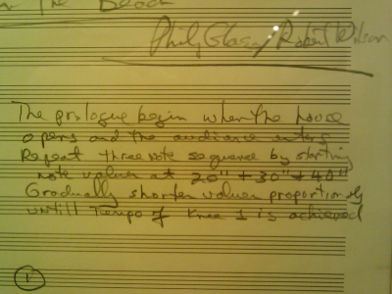 The Beach
Philip Glass/Robert Wilson
The prologue begin when the house
opens and the audience enters
Repeat three note sequence by starting
note values at 20" + 30" + 40"
Gradually shorten values proportionally
untill Tempo of Knee 1 is achieved
1